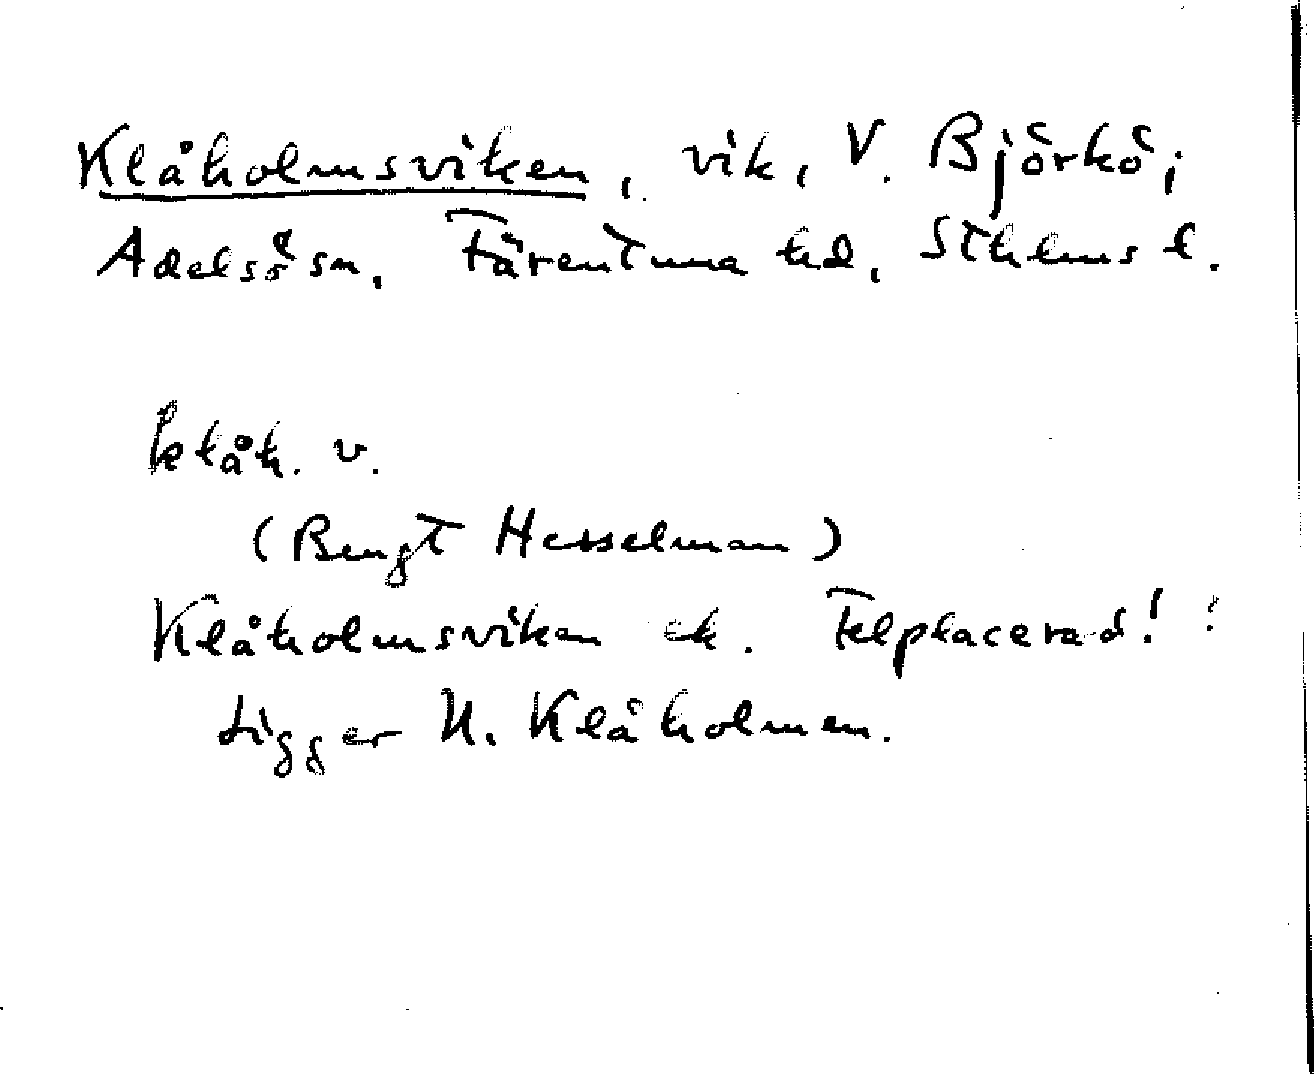 Klåholmsviken, vik, V. Björkö,
Adelsö sn. Färentuna hd, Sthlms l.
klåh. v.
(Bengt Hesselman)
Klåholmsviken ek. Felplacerad!
Ligger N. Klåholmen.